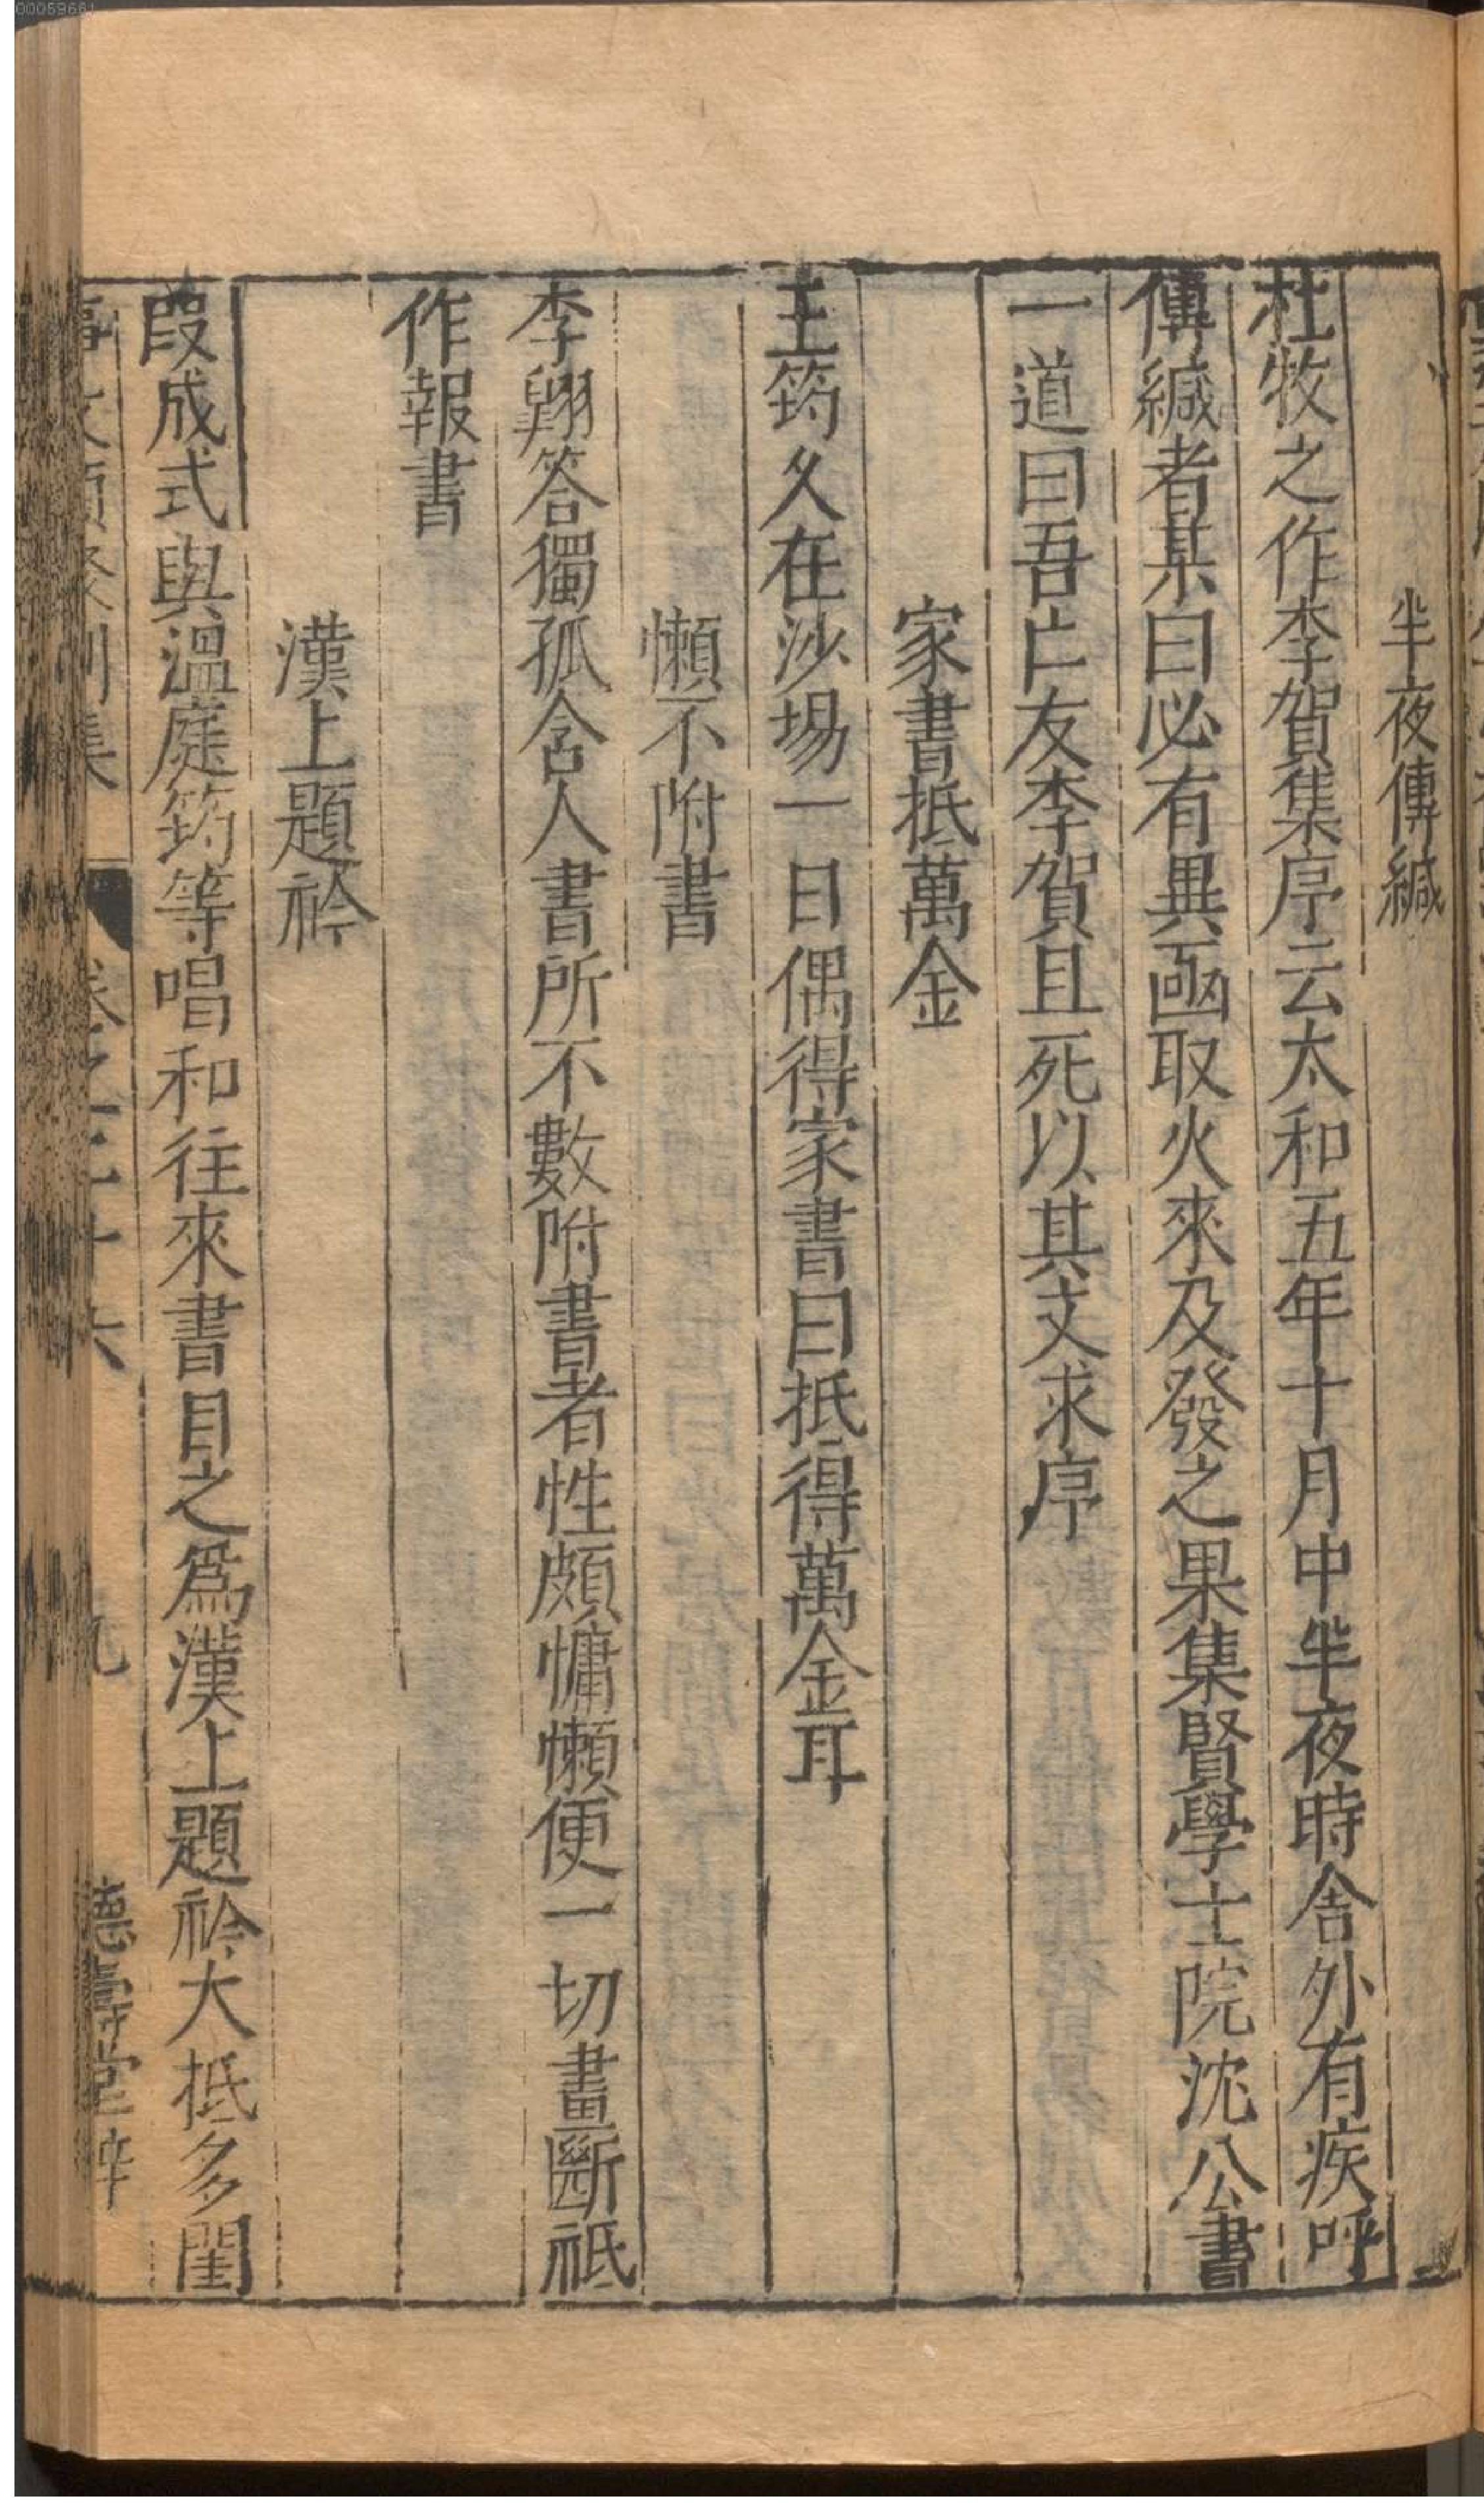 半夜傳緘
杜牧之作李賀集序云太和五年十月中半夜時舍外有疾呼
傳緘者某曰必有異亟取火來及發之果集賢學士院沈公書
一道曰吾亡友李賀且死以其文求序
家書抵萬金
王筠久在沙場一日偶得家書曰抵得萬金耳
懶不附書
李翱答獨孤舍人書所不數附書者性頗慵懶便一切畫斷祗
作報書
漢上題衿
段成式與溫庭筠等唱和往來書目之爲漢上題衿大抵多閨
卷之二十六 九 德壽堂梓
00059661